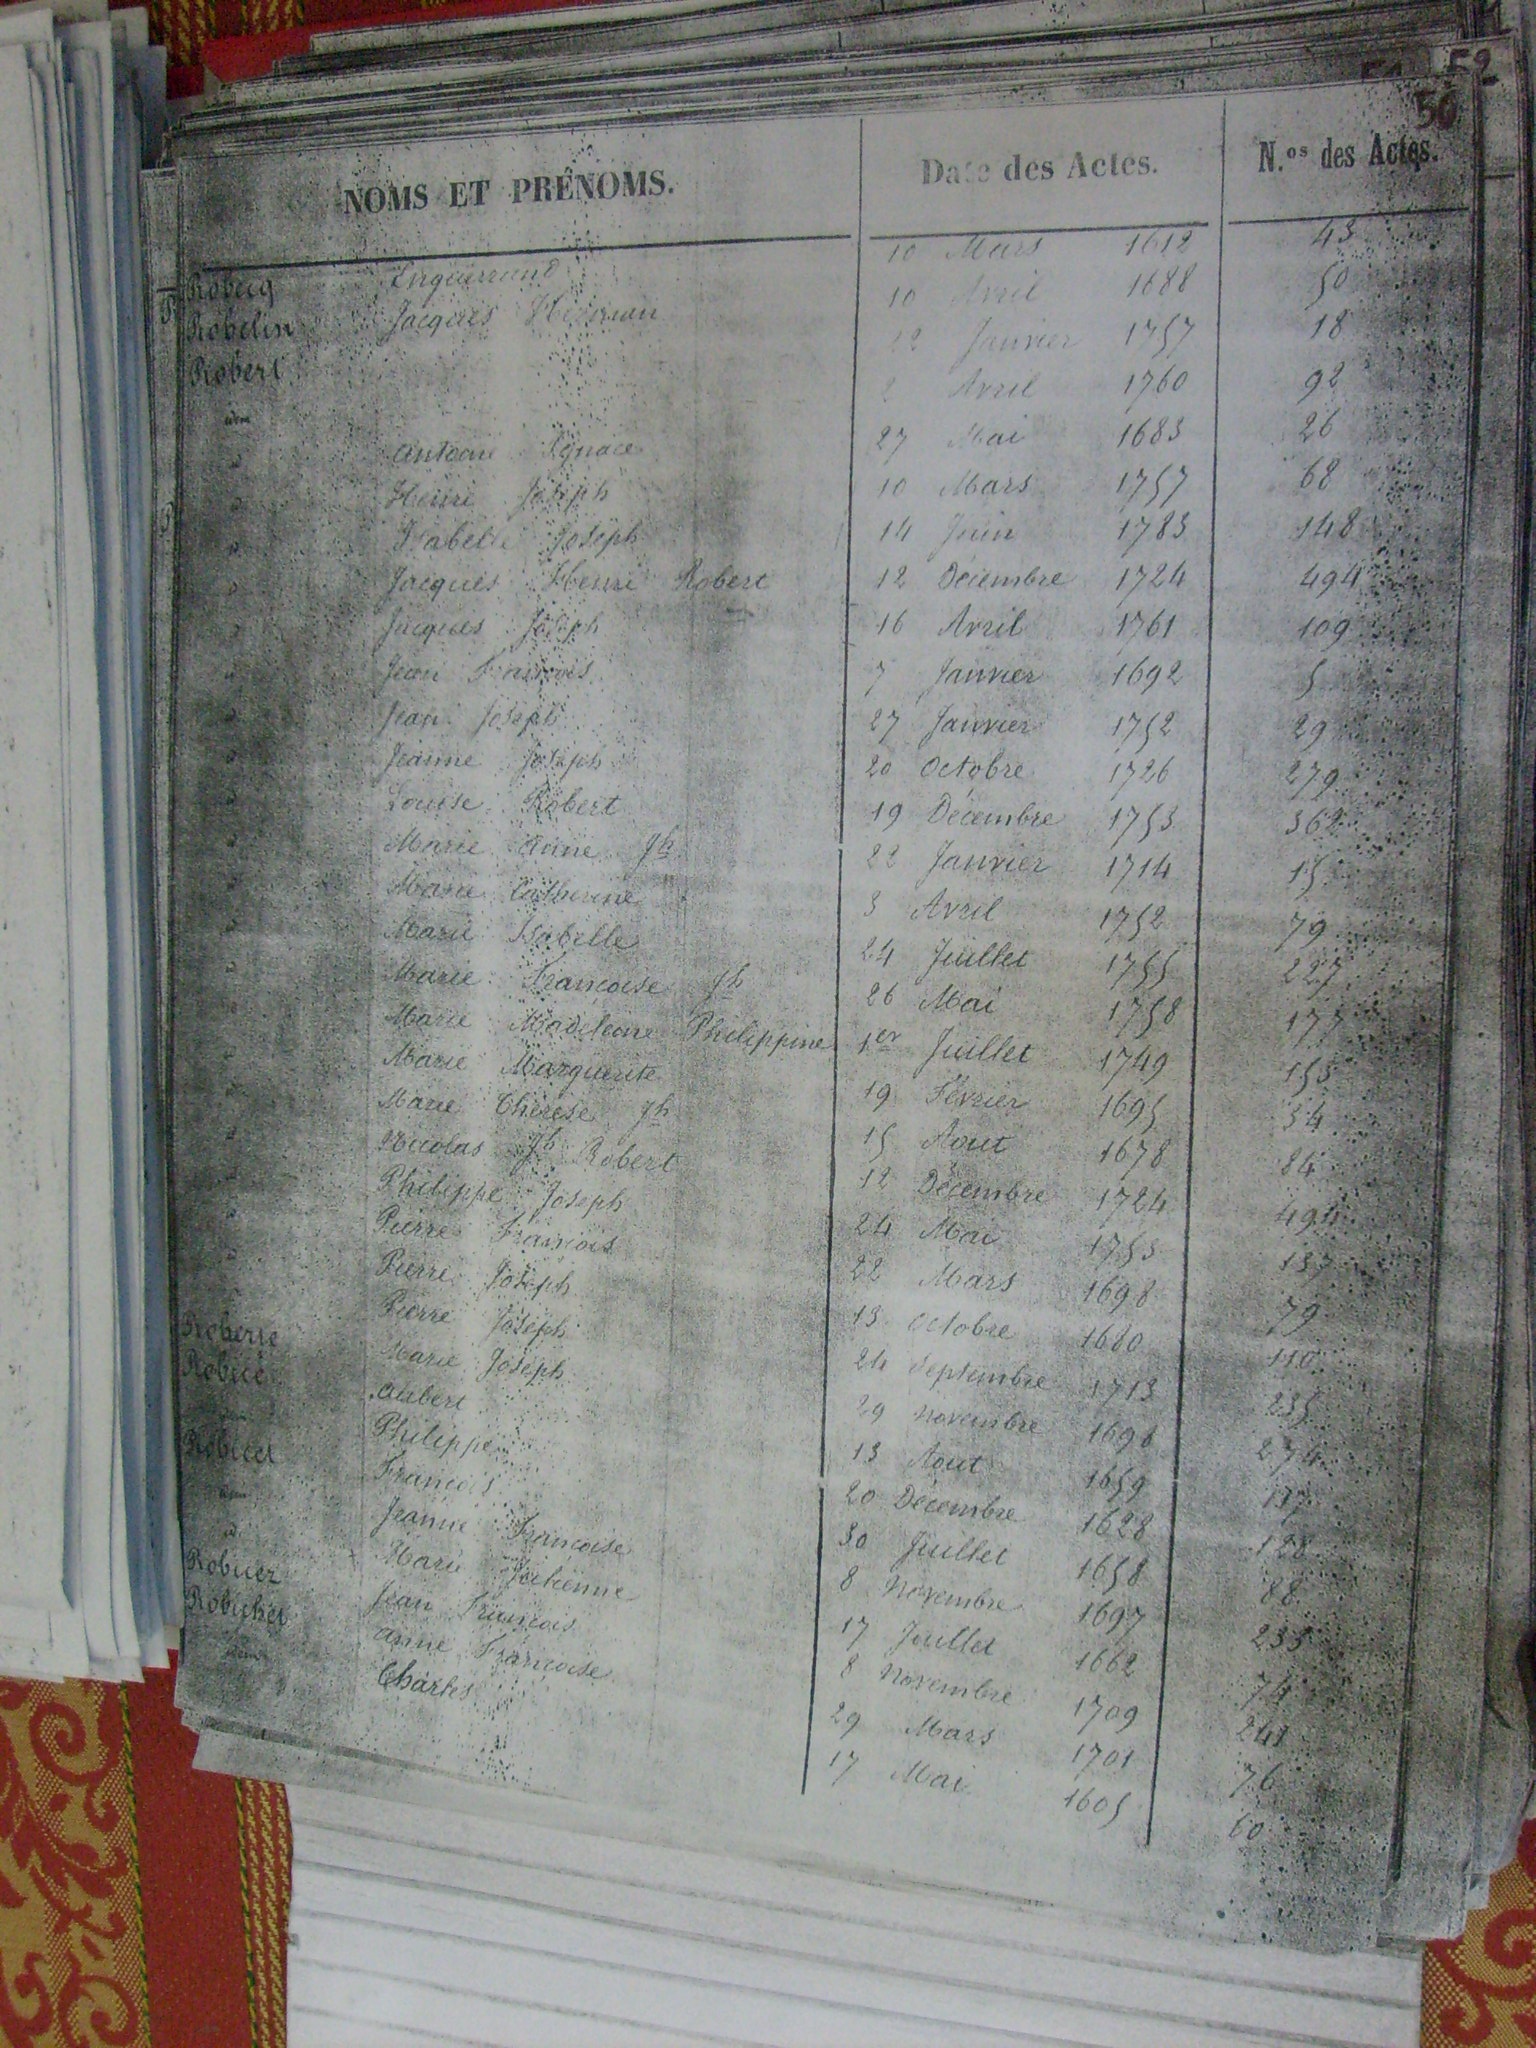 52
51
50
NOMS ET PRÉNOMS. Date des Actes. N.os des Actes.
Robecq Enguerrand 10 Mars 1612 43
Robelin Jacques Herman 10 Avril 1688 50
Robert 22 Janvier 1757 18
idem 2 Avril 1760 92
id antoine Ignace 27 Mai 1683 26
id Henri Joseph 10 Mars 1757 68
id Isabelle Joseph 14 Juin 1783 148
id Jacques Henri Robert 12 Décembre 1724 494
id Jacques Joseph 16 Avril 1761 109
id Jean François 7 Janvier 1692 5
id Jean Joseph 27 Janvier 1752 29
id Jeanne Joseph 20 Octobre 1726 279
id Louise Robert 19 Décembre 1753 362
id Marie anne Jh 22 Janvier 1714 15
id Marie Catherine 3 Avril 1752 79
id Marie Isabelle 24 Juillet 1755 227
id Marie Françoise Jh 26 Mai 1758 177
id Marie Madeleine Philippine 1er Juillet 1749 153
id Marie Marguerite 19 Février 1695 34
id Marie Thérèse Jh 15 Aout 1678 84
id Nicolas Jh Robert 12 Décembre 1724 494
id Philippe Joseph 24 Mai 1753 137
id Pierre François 22 Mars 1698 79
id Pierre Joseph 13 Octobre 1680 110
Pierre Joseph 24 Septembre 1713 235
Marie Joseph 29 novembre 1698 274
aubert 13 Aout 1659 117
Philippe 20 Décembre 1628 128
François 30 Juillet 1658 88
idem Jeanne Françoise 8 Novembre 1697 233
id Marie Julienne 17 Juillet 1662 74
Jean François 8 Novembre 1709 241
Robichet anne Françoise 29 Mars 1701 76
idem Charles 17 Mai 1605 60